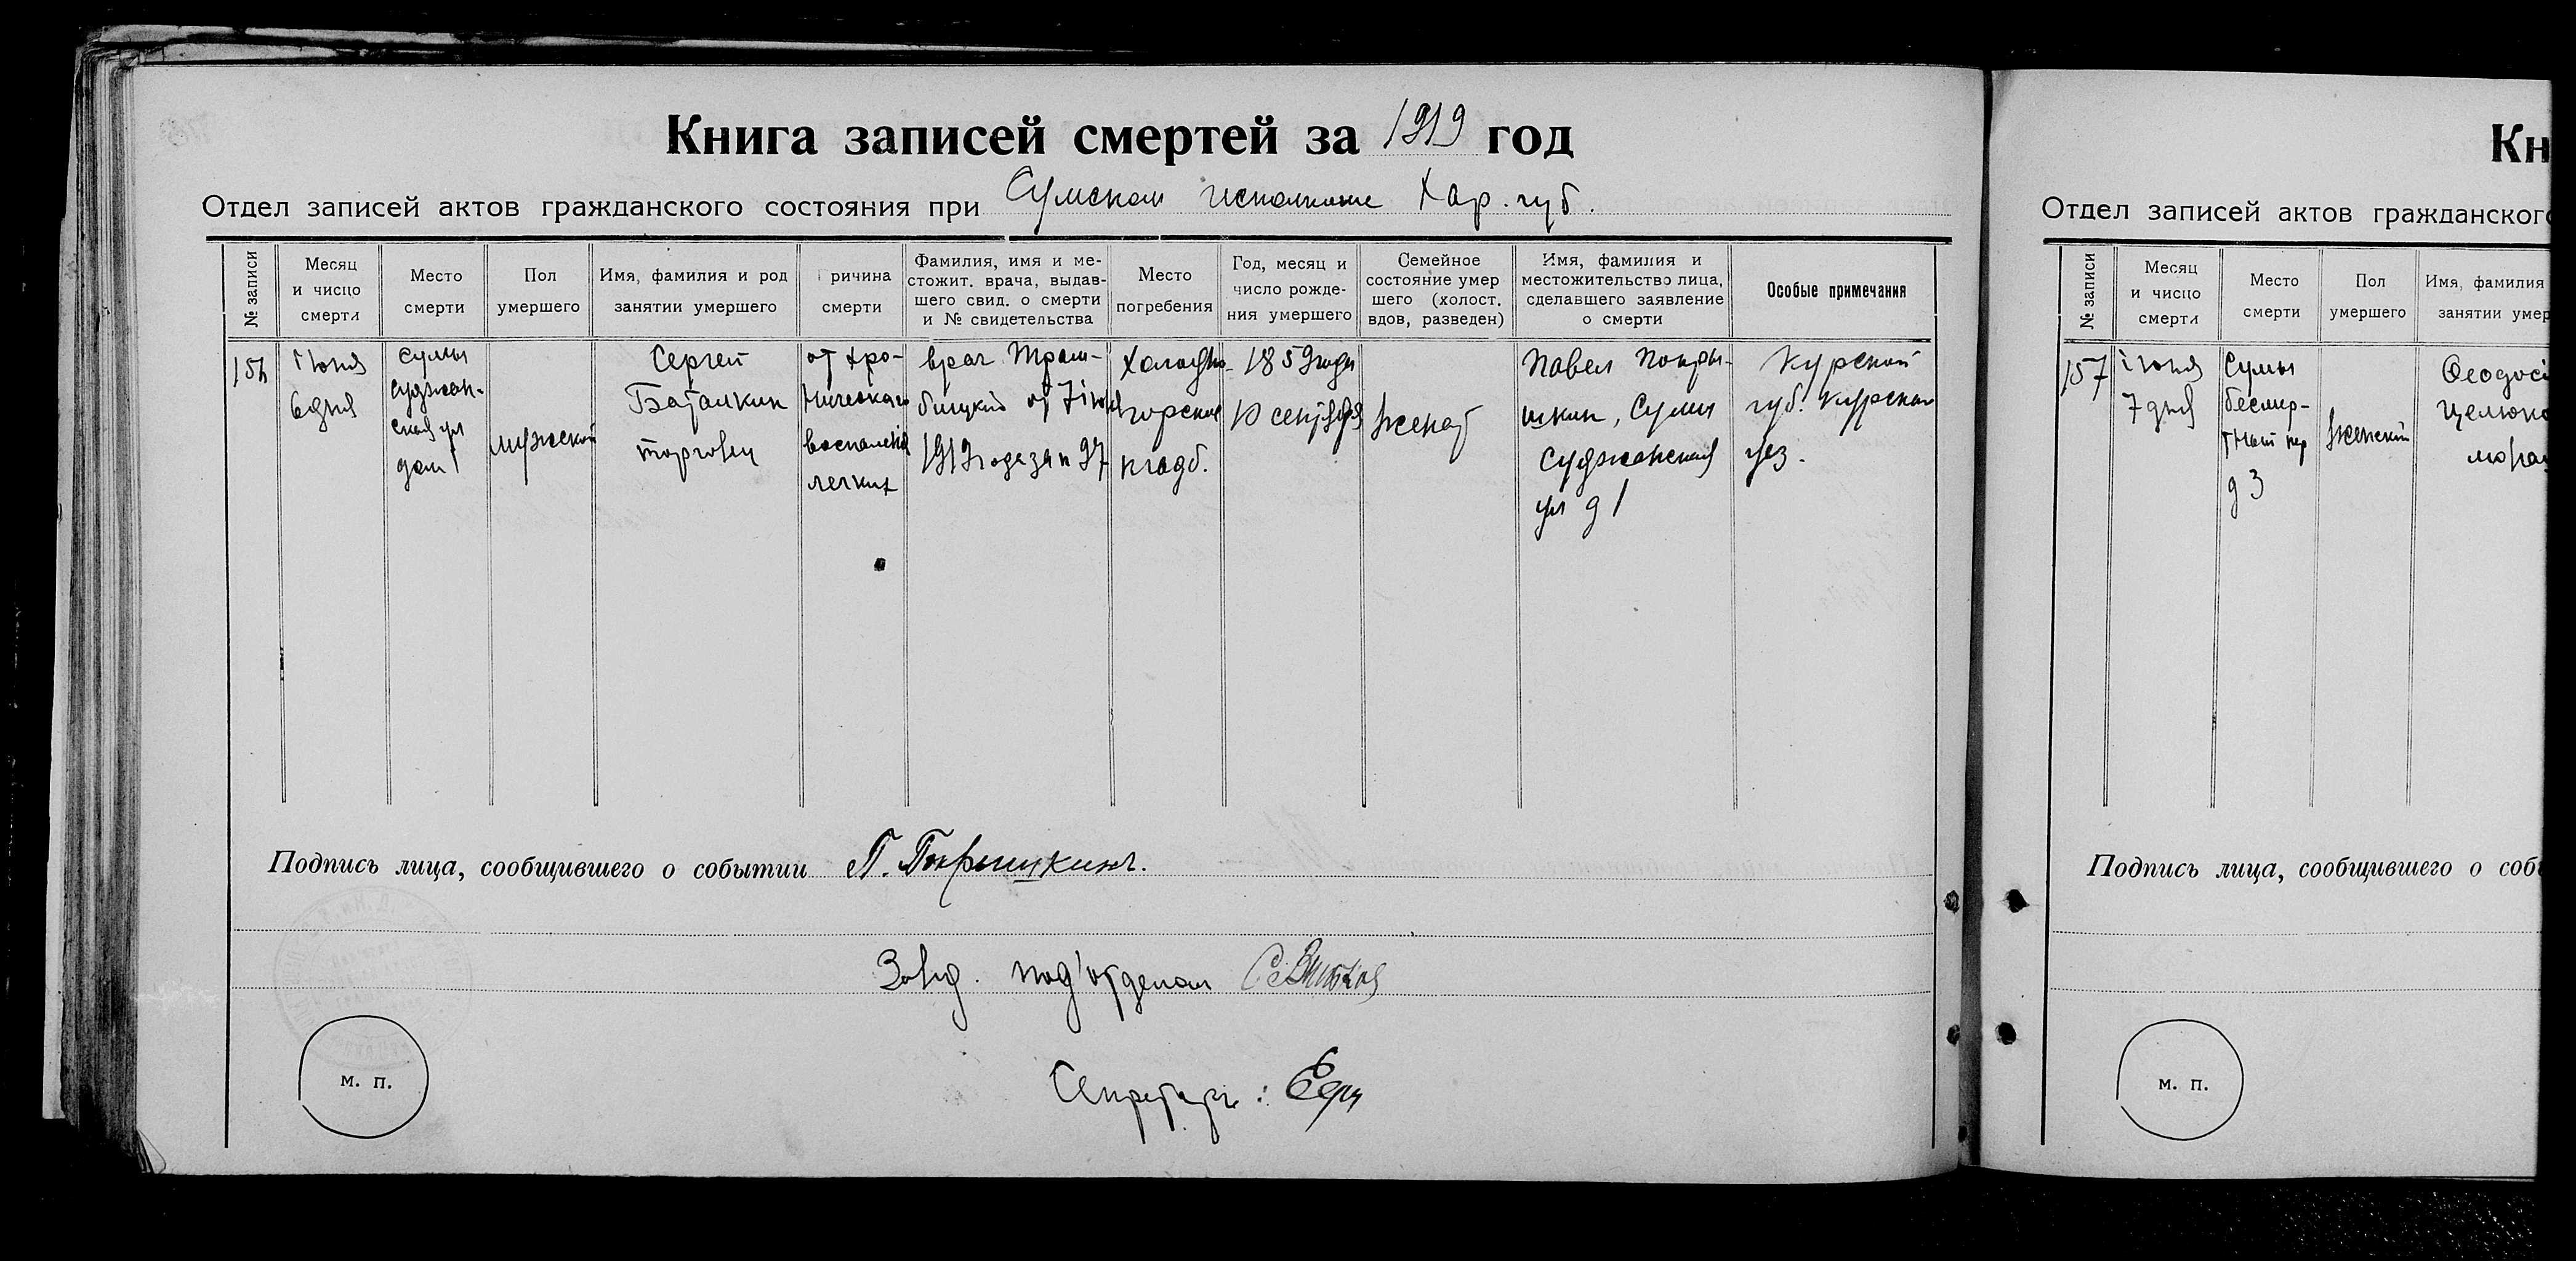 Книга записей смертей за 1919 год
Отдел записей актов гражданского состояния при Сумском исполкоме Хар. губ.
№ записи
Месяц
и чисцо
смерти
Место
смерти
Пол
умершего
Имя, фамилия и род
занятии умершего
ричина
смерти
Фамилия, имя и ме-
стожит. врача, выдав-
шего свид. о смерти
и № свидетельства
Место
погребения
Год, месяц и
число рожде-
ния умершего
Семейное
состояние умер
шего (холост.
вдов, разведен)
Имя, фамилия и
местожительство лица,
сделавшего заявление
о смерти
Особые примечания
156
іюня
6 дня
Сумы
Суджан-
ская ул
дом 1
мужской
Сергей
Баталкин
торговец
от хро-
ническаго
воспаленія
легких
врач Трам-
бицкий от 7 іюня
1919 года за n 97
Холодно-
горское
кладб.
1859 года
10 сентября
женат
Павел Покры-
шкин, Сумы
Суджанская
ул д 1
Курской
губ. Курскаго
уез.
Подпись лица, сообщившего о событии П. Покрышкинъ.
Завед. под'отделом
Секретарь:
м. п.
Кн
Отдел записей актов гражданског
№ записи
Месяц
и чисцо
смерти
Место
смерти
Пол
умершего
Имя, фамилия
занятии умер
157
іюня
7 дня
Сумы
бесмер-
тный пер
д 3
женский
Феодосі
Подпись лица, сообщившего о собы
м. п.